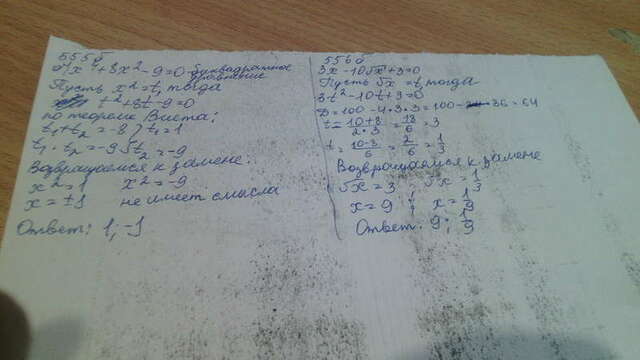 555б
x⁴+8x²-9=0 - биквадратное
уравнение
Пусть x²=t, тогда
t²+8t-9=0
по теореме Виета:
t₁+t₂=-8 } t₁=1
t₁·t₂=-9 } t₂=-9
Возвращаемся к замене:
x²=1 x²=-9
x=±1 не имеет смысла
Ответ: 1; -1
556б
3x-10√x+3=0
Пусть √x=t, тогда
3t²-10t+3=0
D=100-4·3·3=100-36=64
t=(10+8)/(2·3)=18/6=3
t=(10-8)/6=2/6=1/3
Возвращаемся к замене
√x=3 ; √x=1/3
x=9 ; x=1/9
Ответ: 9; 1/9